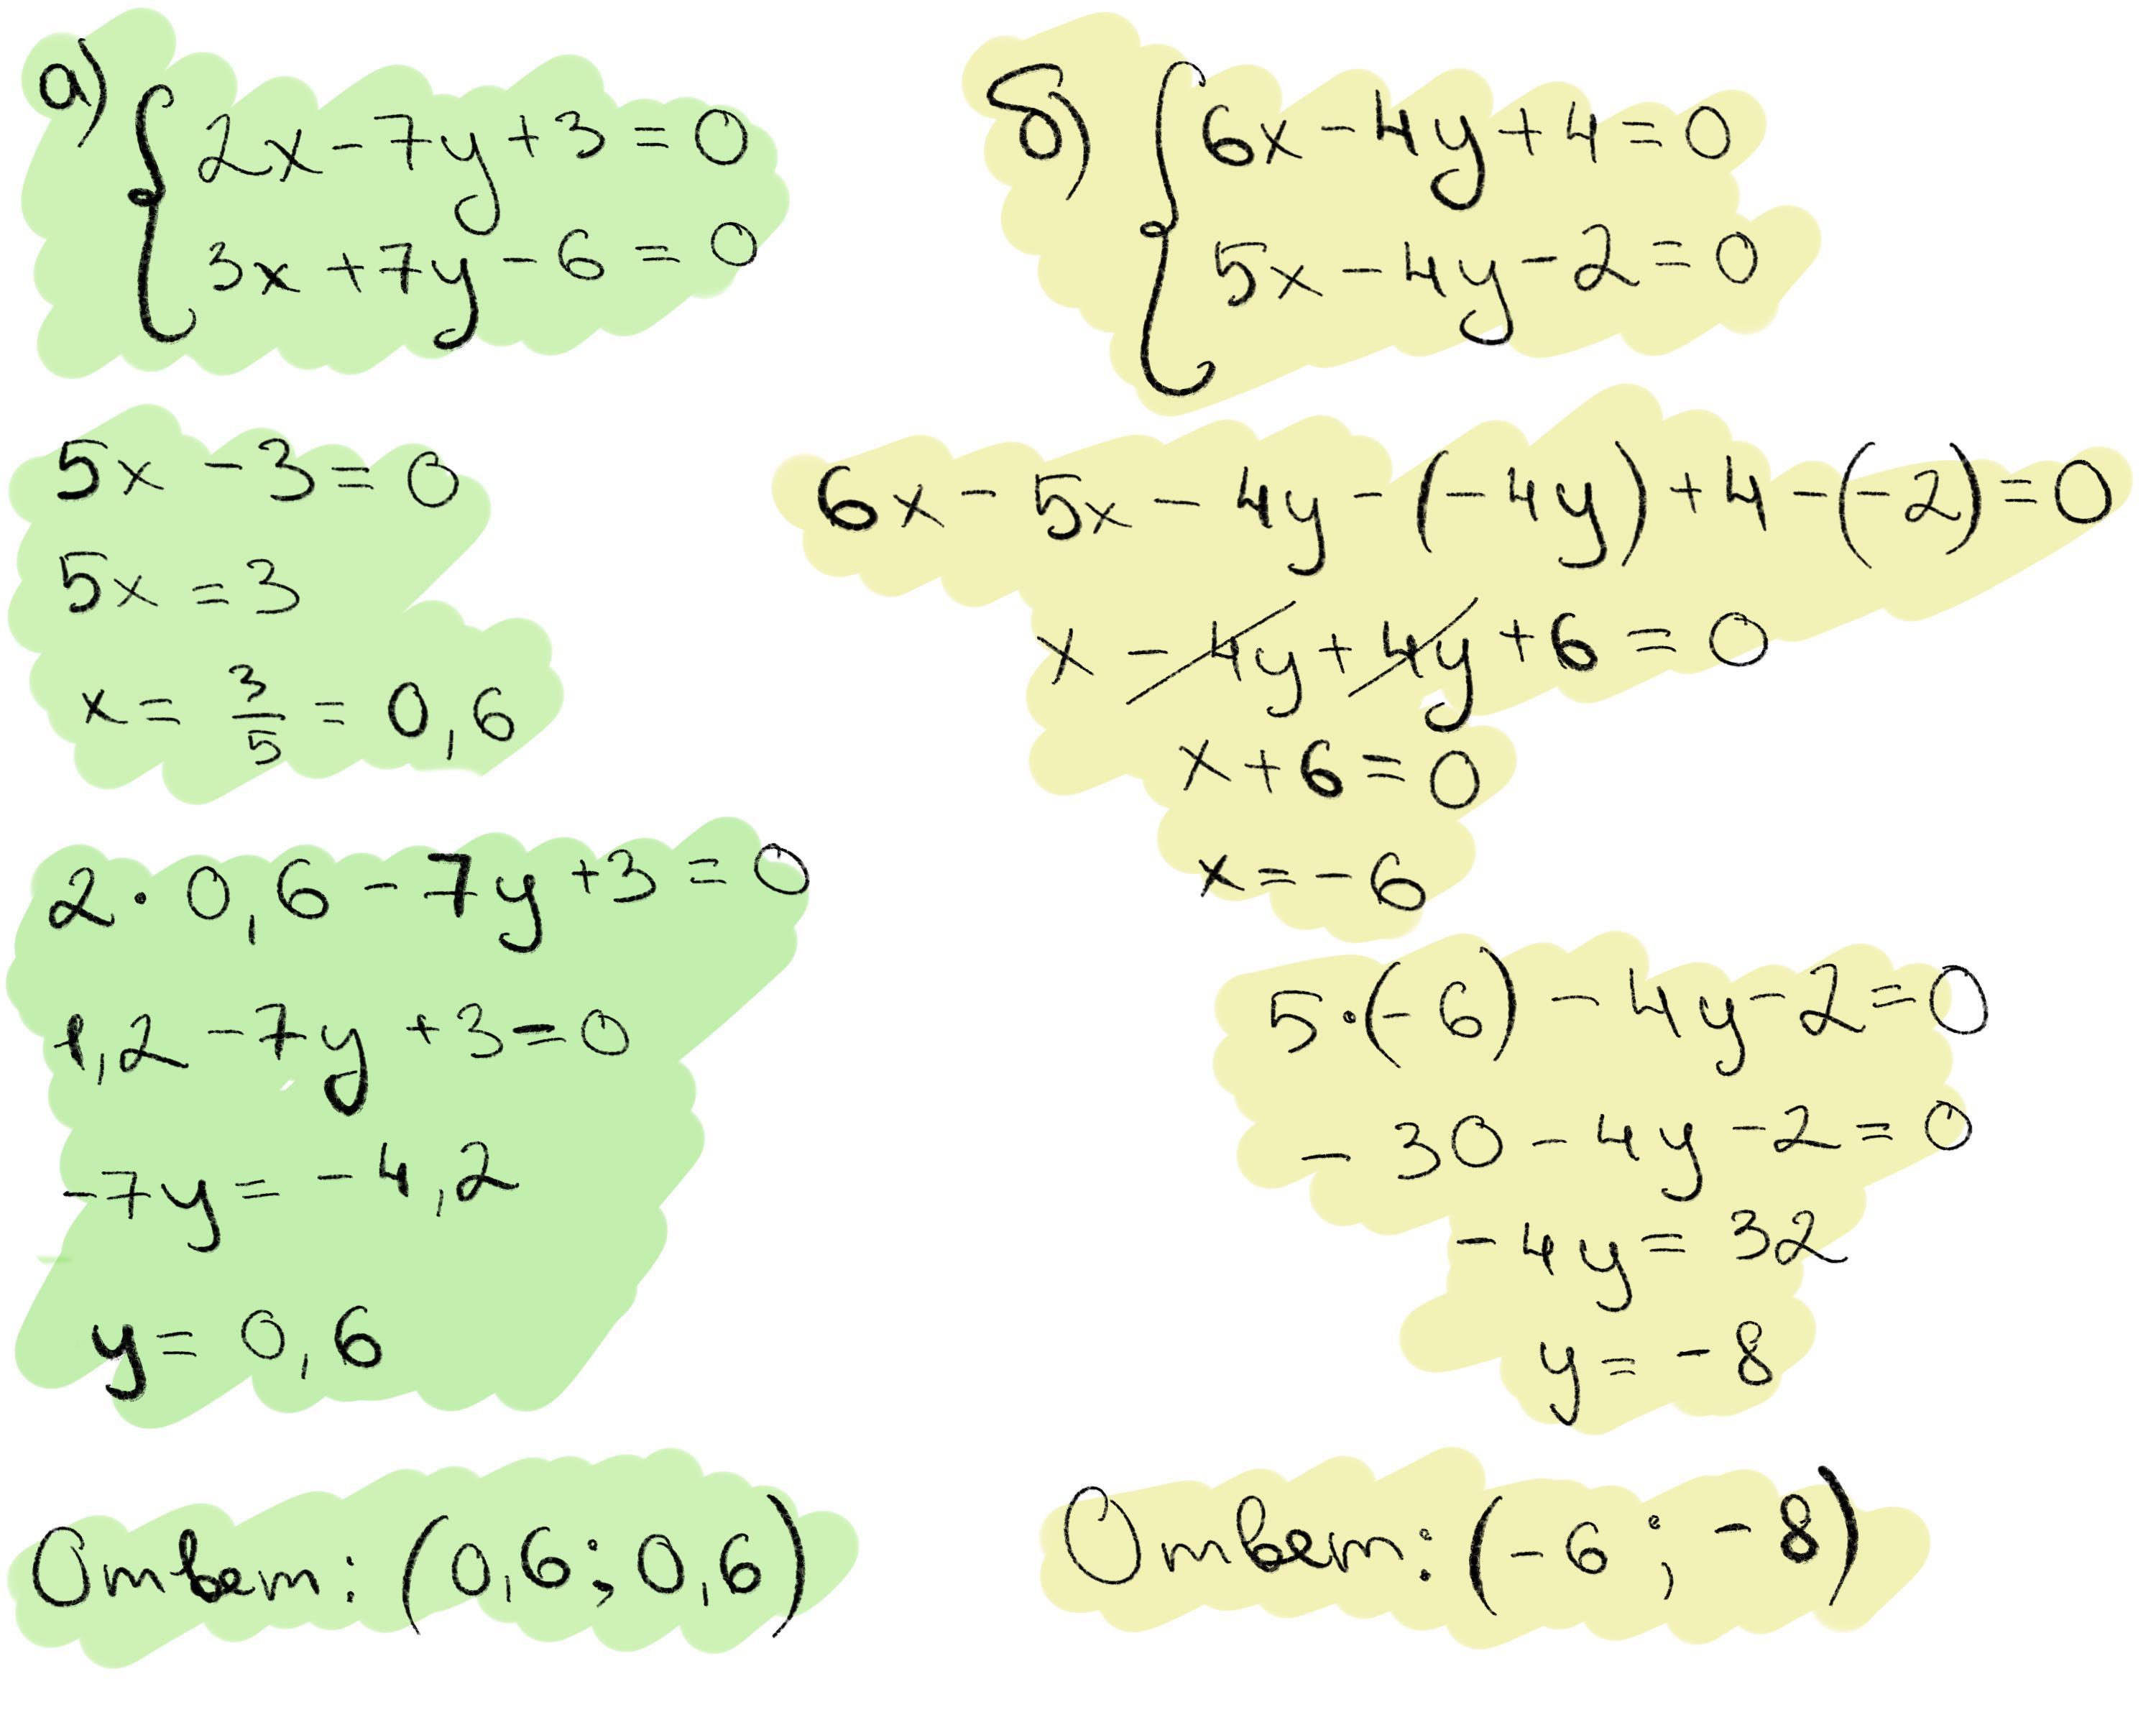 а) { 2x - 7y + 3 = 0
3x + 7y - 6 = 0
5x - 3 = 0
5x = 3
x = 3/5 = 0,6
2 · 0,6 - 7y + 3 = 0
1,2 - 7y + 3 = 0
-7y = -4,2
y = 0,6
Ответ: (0,6; 0,6)
б) { 6x - 4y + 4 = 0
5x - 4y - 2 = 0
6x - 5x - 4y - (-4y) + 4 - (-2) = 0
x - 4y + 4y + 6 = 0
x + 6 = 0
x = -6
5·(-6) - 4y - 2 = 0
- 30 - 4y - 2 = 0
-4y = 32
y = -8
Ответ: (-6; -8)